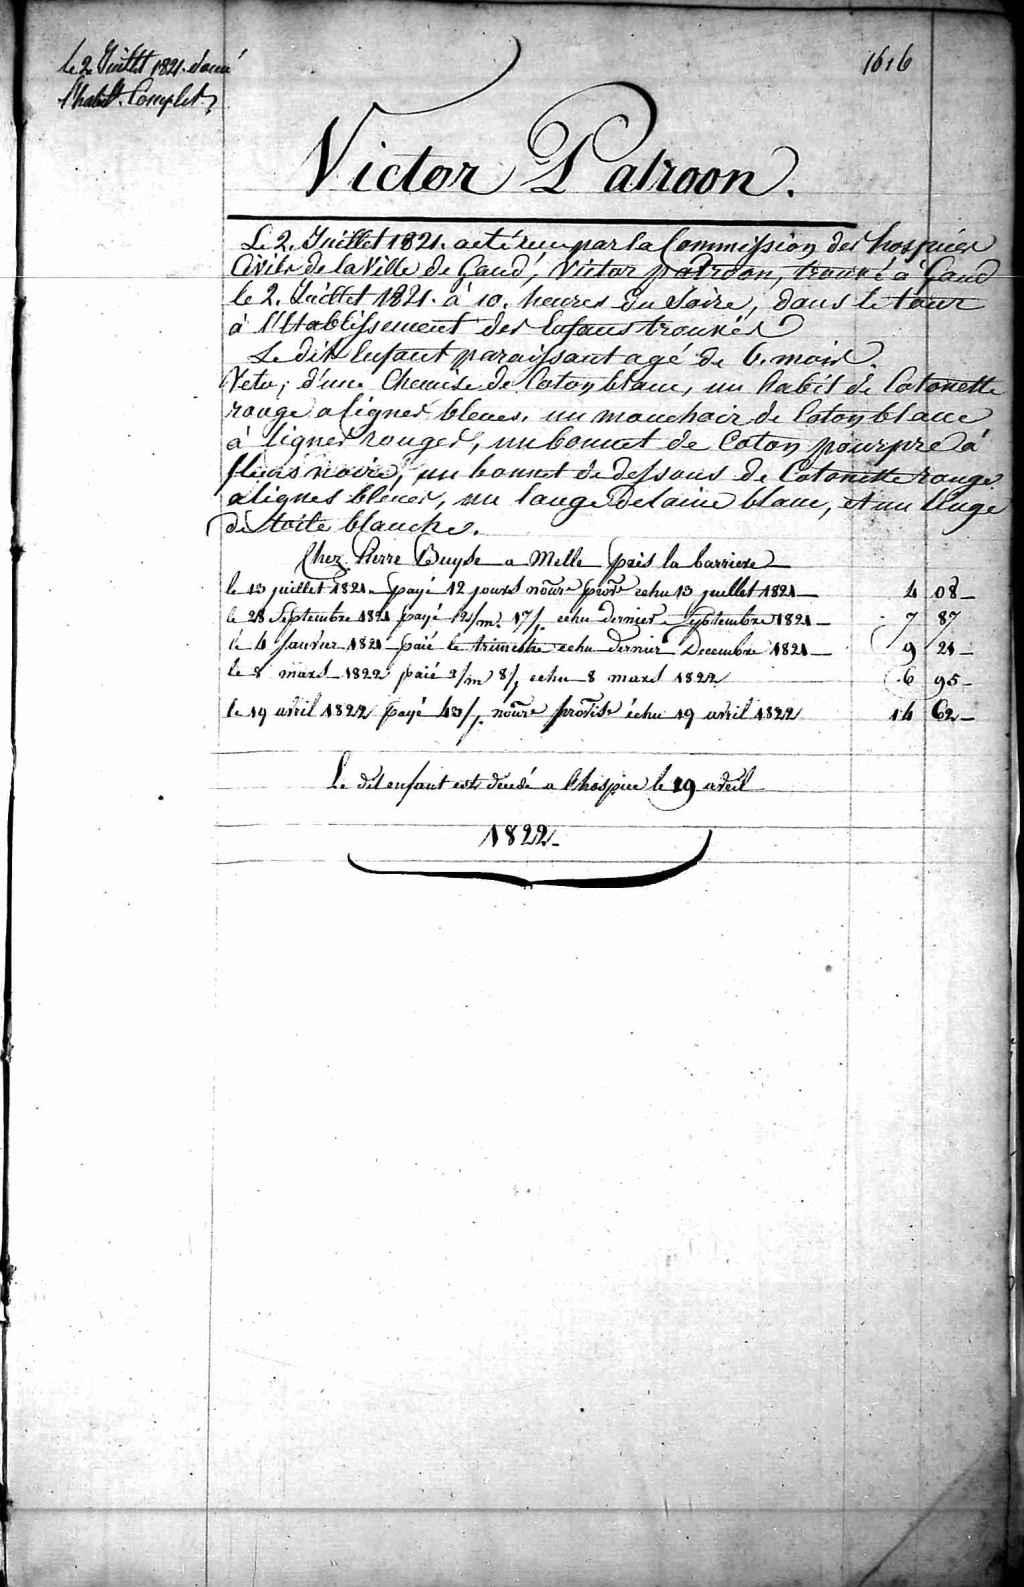 le 2 Juillet 1821. donné
l'habilt. Complet
1616
Victor Patroon.
Le 2. Juillet 1821. a eté reçu par la Commission des hospices
Civils de la Ville de Gand, Victor patroon, trouvé à Gand
le 2. Juillet 1821. à 10. heures du Soire, dans le tour
à l'Etablissement des Enfans trouvés
Le dit Enfant paraissant agé de 6. mois.
Vetu, d'une Chemise de Coton blanc, un habit de Cotonette
rouge a lignes bleues, un mouchoir de Coton blanc
à lignes rouges, un bonnet de Coton pourpre à
fleurs noire, un bonnet de dessous de Cotonette rouge
a lignes bleues, un lange de laine blanc, et un linge
de toile blanche.
Chez Pierre Buyse a Melle près la barriere
le 13 juillet 1821 payé 12 jours nourre provre echu 13 juillet 1821 4 08
le 28 Septembre 1821 payé 2/m. 17/j. echu dernier Septembre 1821 7 87
le 4 Janvier 1821 paié le trimestre echu dernier Decembre 1821 9 21
le 8 mars 1822 paié 2/m 8/j echu 8 mars 1822 6 95
le 19 avril 1822 payé 43/j. nourre provise échu 19 avril 1822 14 62
Le dit enfant est décédé a l'hospice le 29 avril
1822